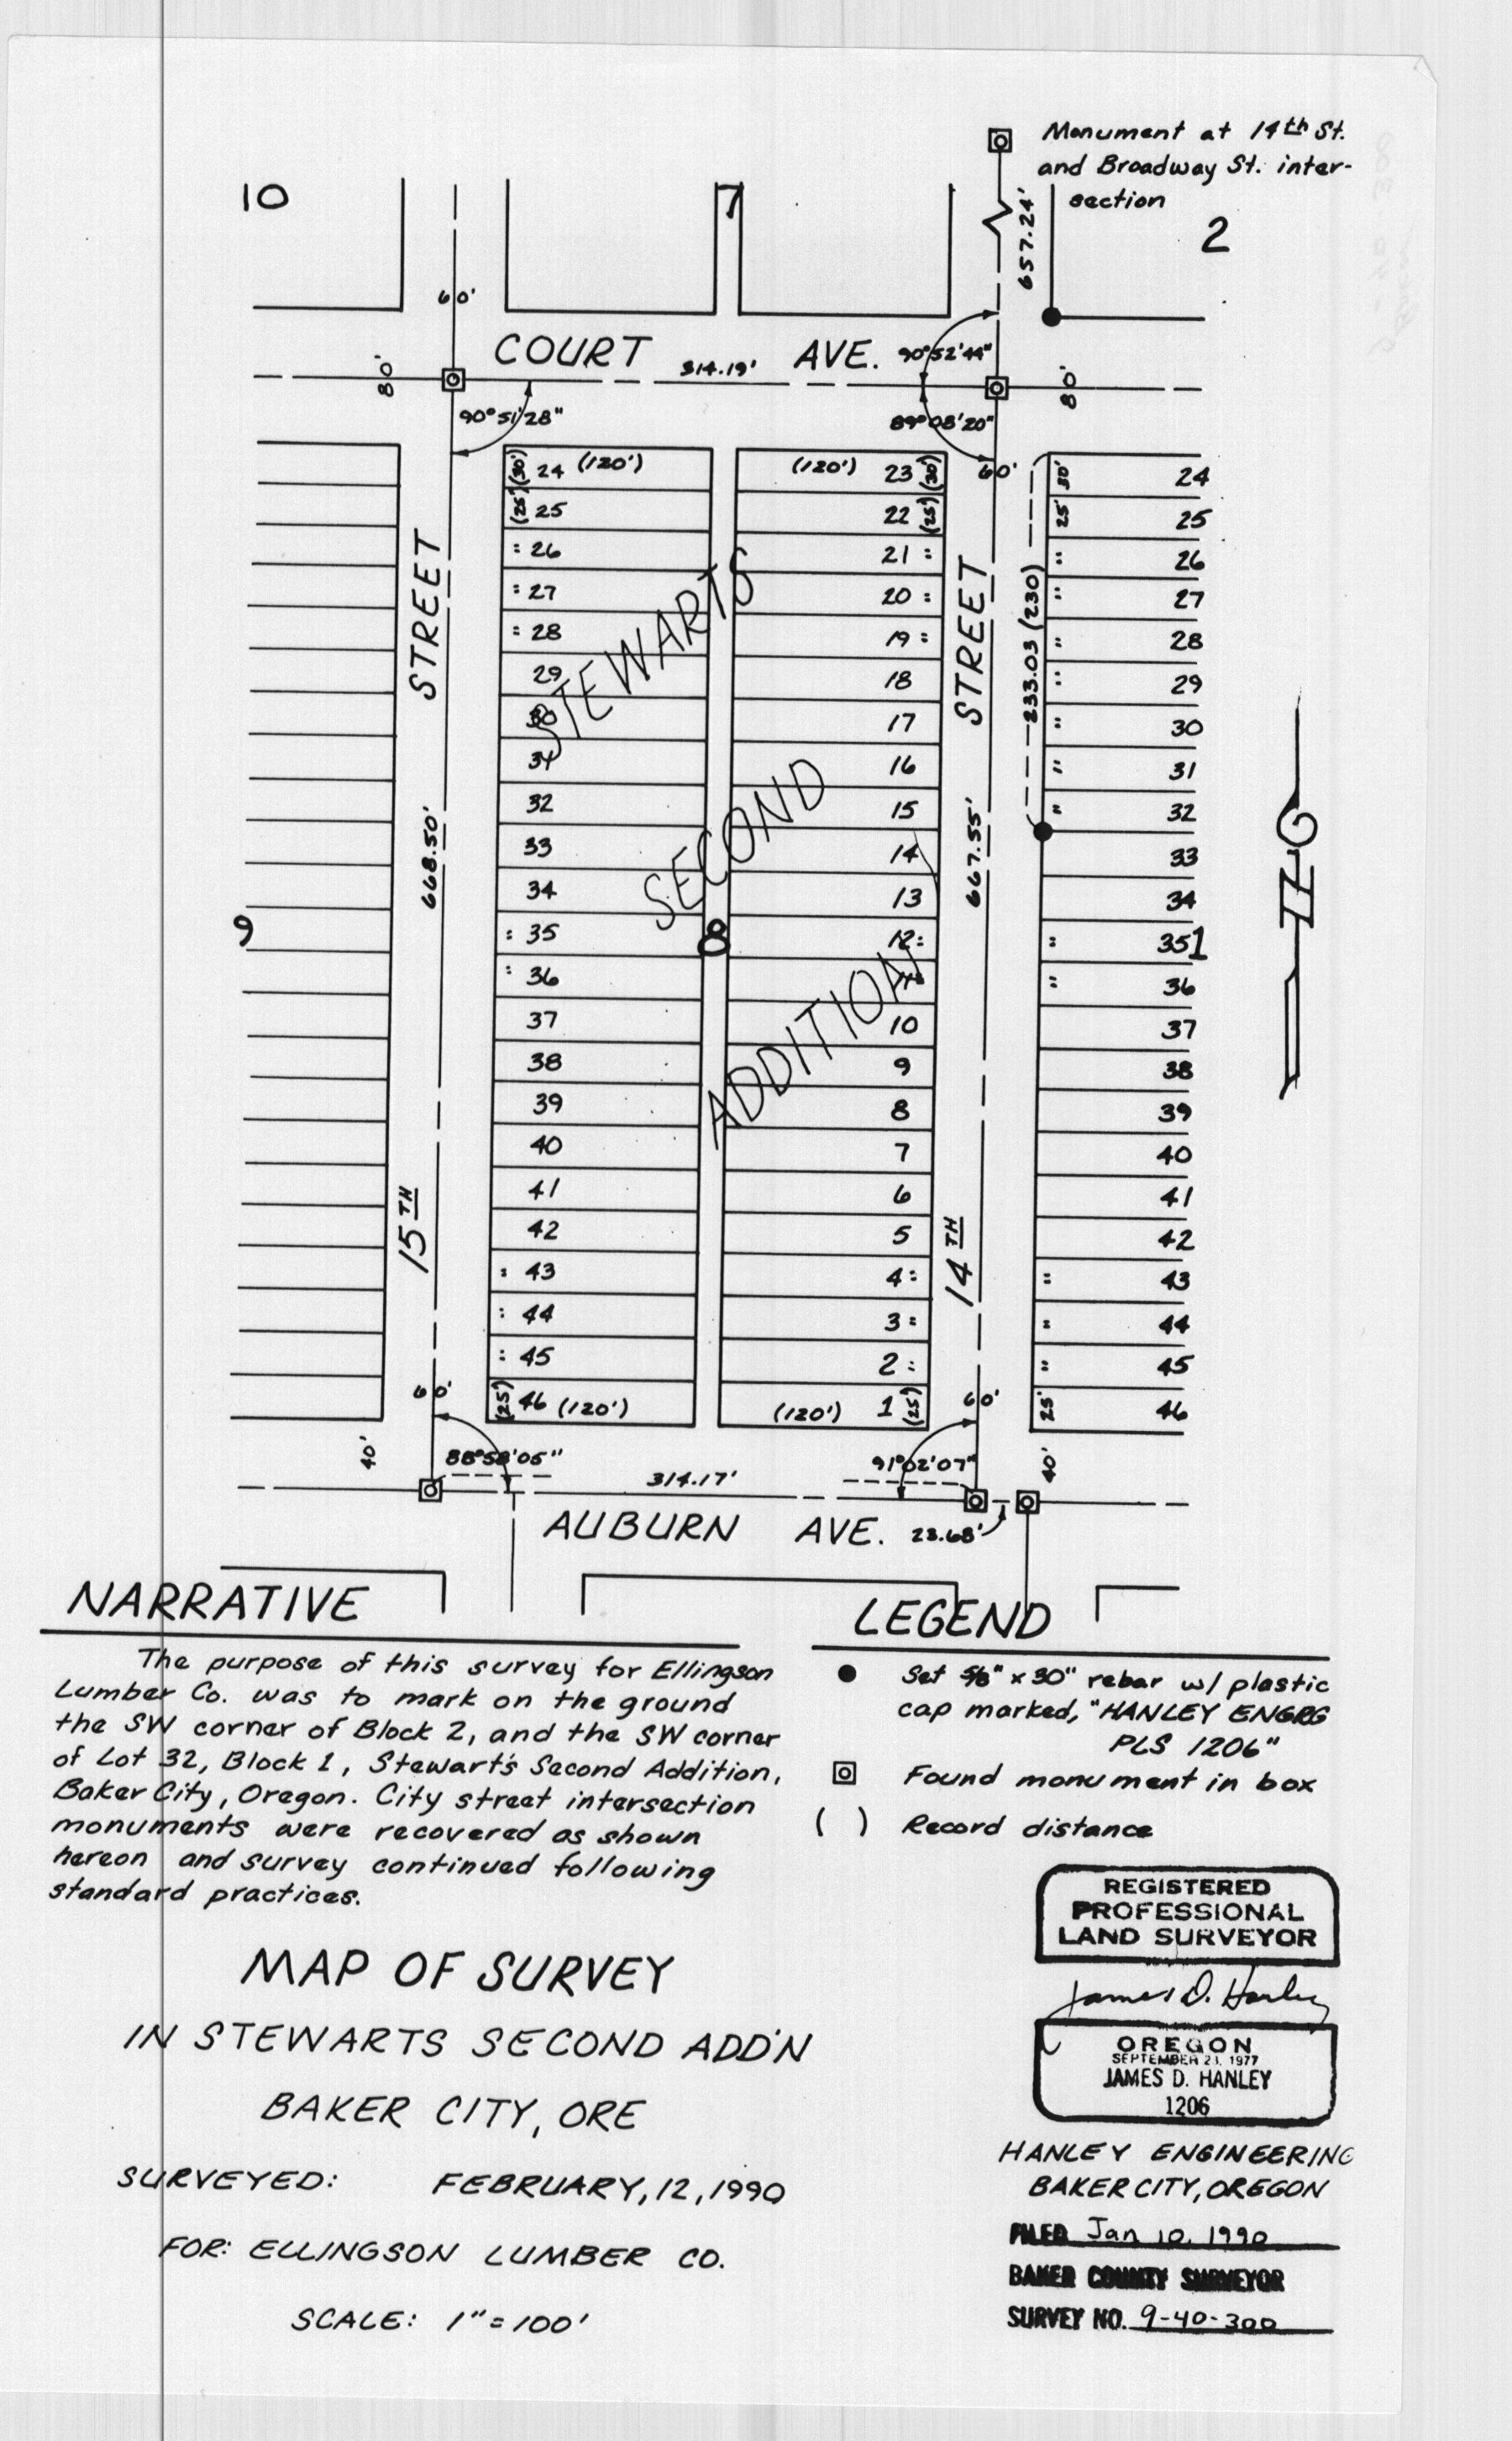 Monument at 14th St.
and Broadway St. inter-
section
10
7
2
657.24'
60'
COURT AVE.
314.19'
90°52'44"
80'
80'
90°51'28"
89°08'20"
60'
(30') 24 (120')
(25') 25
" 26
" 27
" 28
29
30
31
32
33
34
" 35
" 36
37
38
39
40
41
42
" 43
" 44
" 45
(25') 46 (120')
(120') 23 (30')
22 (25')
21 "
20 "
19 "
18
17
16
15
14
13
12 "
10
9
8
7
6
5
4 "
3 "
2 "
(120') 1 (25')
30' 24
25' 25
" 26
" 27
" 28
" 29
" 30
" 31
" 32
33
34
" 35
1
" 36
37
38
39
40
41
42
" 43
" 44
" 45
25' 46
233.03 (230)
STEWARTS
SECOND
ADDITION
8
9
15TH STREET
668.50'
14TH STREET
667.55'
N
60'
60'
40'
40'
88°58'05"
91°02'07"
314.17'
AUBURN AVE.
23.68'
NARRATIVE
The purpose of this survey for Ellingson
Lumber Co. was to mark on the ground
the SW corner of Block 2, and the SW corner
of Lot 32, Block 1, Stewart's Second Addition,
Baker City, Oregon. City street intersection
monuments were recovered as shown
hereon and survey continued following
standard practices.
LEGEND
Set 5/8" x 30" rebar w/ plastic
cap marked, "HANLEY ENGRG
PLS 1206"
Found monument in box
( ) Record distance
MAP OF SURVEY
IN STEWARTS SECOND ADD'N
BAKER CITY, ORE
SURVEYED: FEBRUARY, 12, 1990
FOR: ELLINGSON LUMBER CO.
SCALE: 1" = 100'
REGISTERED
PROFESSIONAL
LAND SURVEYOR
James D. Hanley
OREGON
SEPTEMBER 23, 1977
JAMES D. HANLEY
1206
HANLEY ENGINEERING
BAKER CITY, OREGON
FILED Jan 10, 1990
BAKER COUNTY SURVEYOR
SURVEY NO. 9-40-300